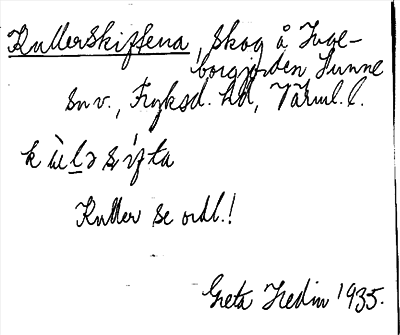 Kullerskiftena, skog å Inge-
borgjorden Sunne
sn v., Fryksd. hd, Värml. l.
Kuller se ordl.!
Greta Hedin 1935.